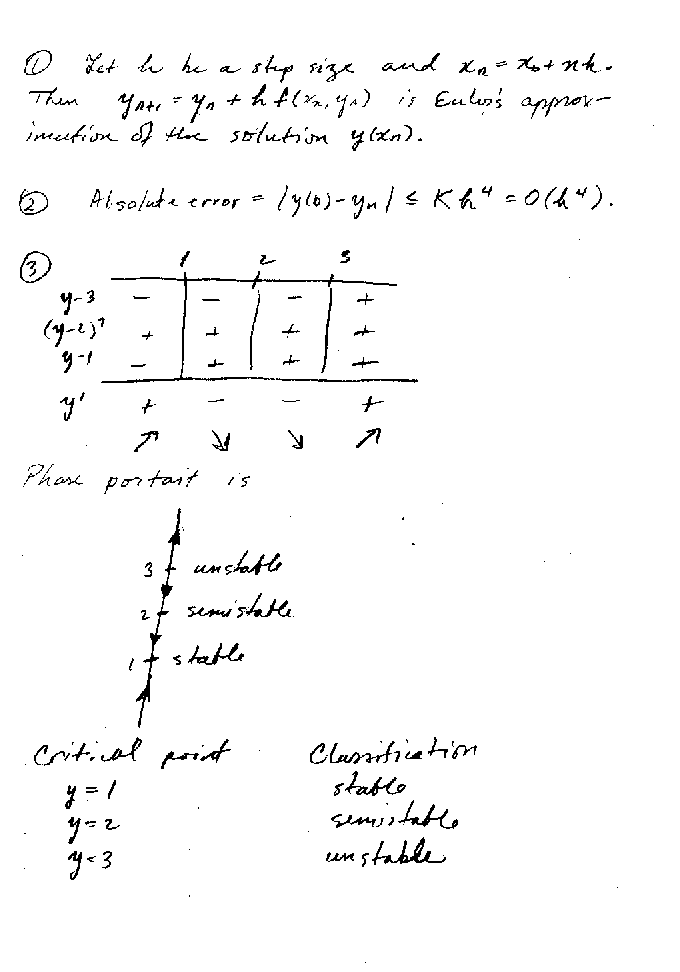 ① Let h be a step size and xₙ = x₀ + nh.
Then yₙ₊₁ = yₙ + h f(xₙ, yₙ) is Euler's approx-
imation of the solution y(xₙ).
② Absolute error = |y(b) - yₙ| ≤ K h⁴ = O(h⁴).
③ 1 2 3
y-3 - - - +
(y-2)² + + + +
y-1 - + + +
y' + - - +
↗ ↘ ↘ ↗
Phase portait is
3 unstable
2 semistable
1 stable
Critical point Classification
y = 1 stable
y = 2 semistable
y = 3 unstable